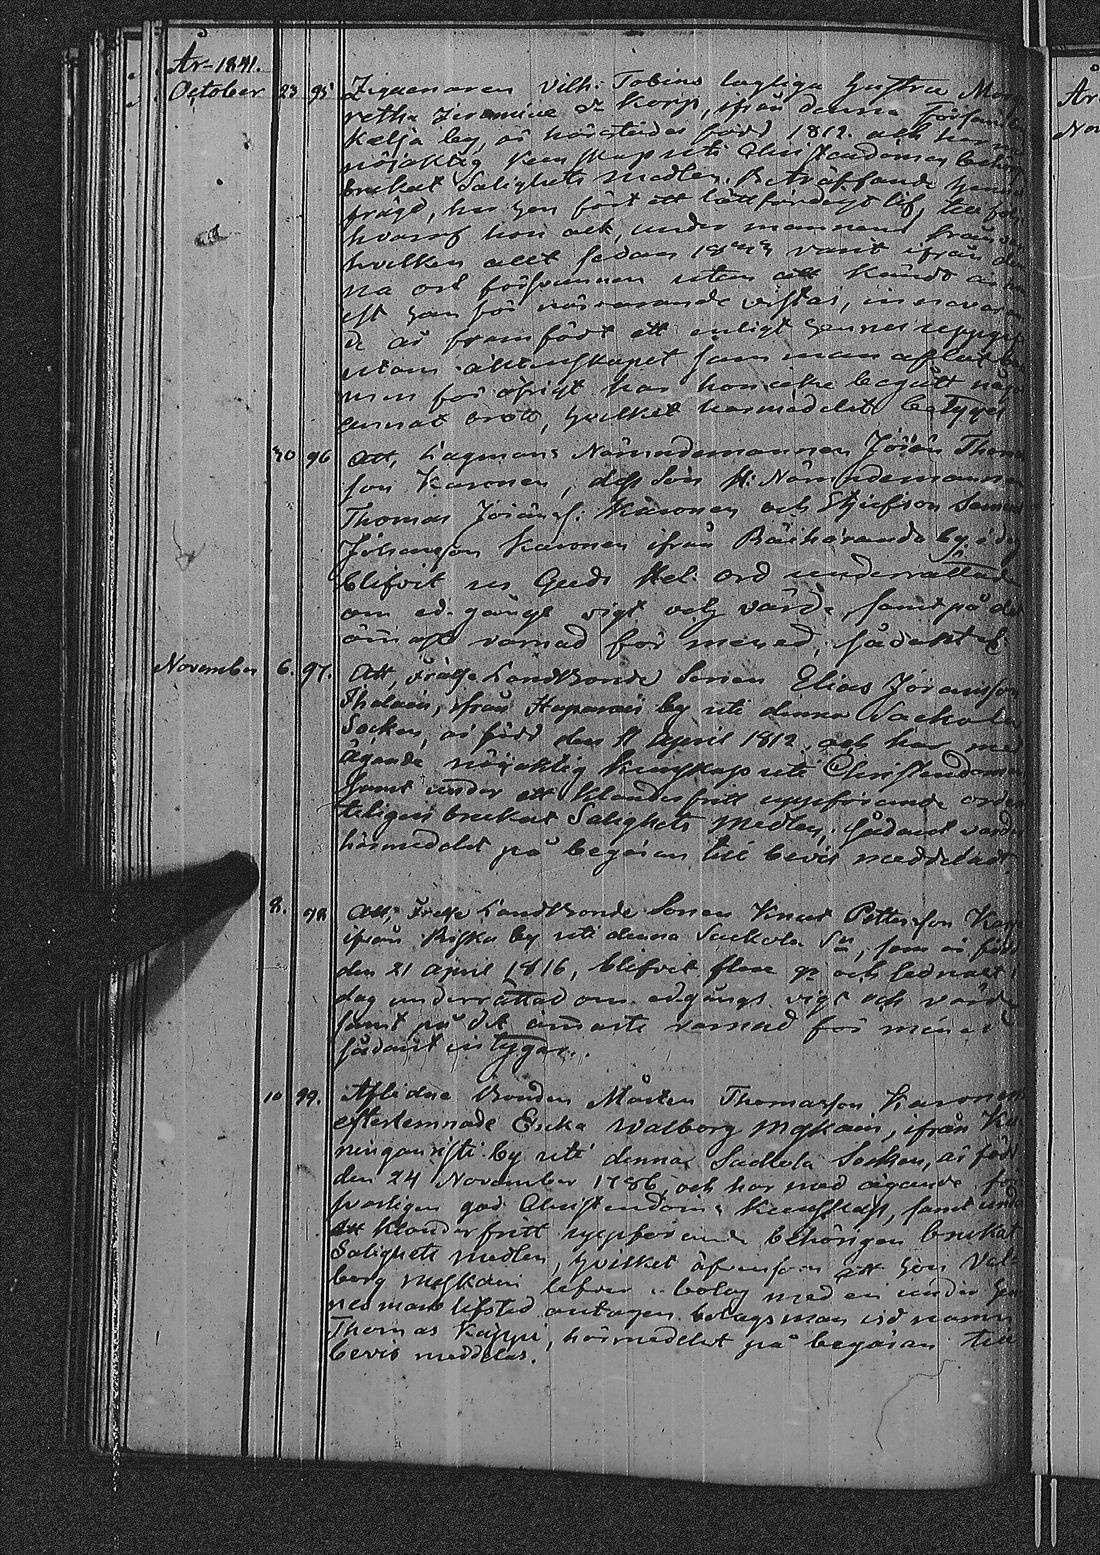 År 1841.
October 23 95 Zigenaren Vilh: Tobias lagliga hustru Marg
retha Jeremiae dr Korp, ifrån denna Församli
Kelja by, är härstädes född 1812. och har
nöjaktig kunskap uti Christendomen behör
brukat Salighets medlen. Beträffande hennes
frägd, har hon fört ett lättfärdigt lif, till föl
hvaraf hon ock, under mannens frånva
hvilken allt sedan varit ifrån den
na ort försvunnen utan att kändt är
est han för närvarande vistas, innevaran
de år framfödt ett enligt hennes uppgif
utom äktenskapet som man aflat
men för öfrigt har hon icke begått någo
annat brott, hvilket härmedelst betygas
30 96 Att, Lagmans Nämndemannen Jöran Thom
son Karonen, dess Son f: Nämndemannen
Thomas Jöransf: Karonen och Styfson Samuel
Johansson Karonen ifrån by i dag
blifvit ur Guds Hel. ord underrättade
om ed-gångs vigt och värde, samt på det
ömmaste varnad för mened, sådant &
November 6. 97. Att, Frälse Landbonde Sonen Elias Joransson
ifrån Haparais by uti denna Sackola
Socken, är född den 11 April 1812, och har med
ägande nöjaktig kunskap uti Christendomen
samt under ett klanderfritt uppförande orden
teligen brukat Salighets medlen; sådant varder
härmedelst på begäran till bevis meddeladt.
8. 98 Att, Frälse Landbonde Sonen Knut Pettersson
ifrån Riska by uti denna Sackola Sn, som är född
den 21 April 1816, blifvit flere gr och sednast i
dag underrättad om edgångs vigt och värde
samt på det ömaste varnad för mened
sådant intygar.
10 99. Aflidne Bonden Mårten Thomasson Karonens
efterlemnade Enka Walborg, ifrån
by uti denna Sackola Socken, är född
den 24 November 1786, och har med ägande för
svarligen god Christendoms kunskap, samt under
ett klanderfritt uppförande behörigen brukat
Salighets medlen, hvilket äfvensom att hon Val-
borg lefver i bolag med en under hen
nes mans lifstid antagen bolagsman vid namn
Thomas Käppi, härmedelst på begäran till
bevis meddelas.
År
Nov